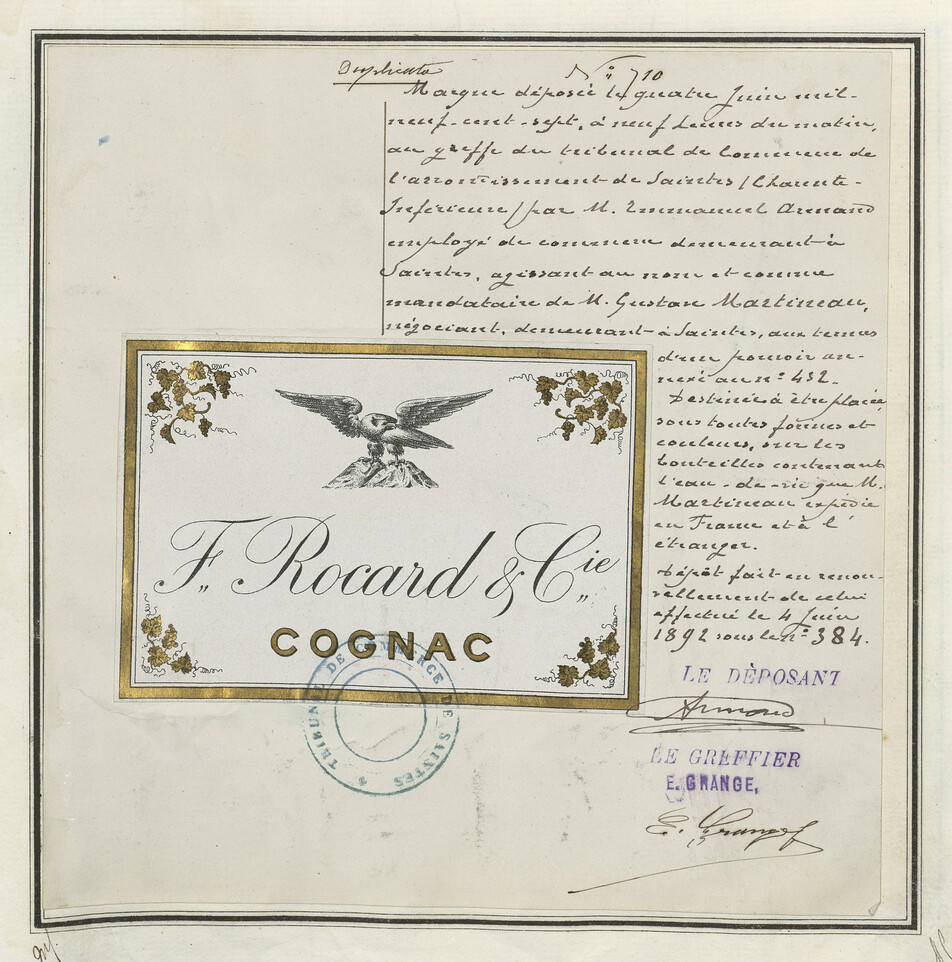 Duplicata
N° 710
Marque déposée le quatre Juin mil-
neuf-cent-sept, à neuf heures du matin,
au greffe du tribunal de Commerce de
l'arrondissement de Saintes (Charente-
Inférieure) par M. Emmanuel Armand
employé de commerce demeurant à
Saintes, agissant au nom et comme
mandataire de M. Gustave Martineau,
négociant, demeurant à Saintes, aux termes
d'un pouvoir an-
nexé au n° 452.
Destinée à être placée,
sous toutes formes et
couleurs, sur les
bouteilles contenant
l'eau-de-vie que M.
Martineau expédie
en France et à l'
étranger.
Dépôt fait en renou-
vellement de celui
effectué le 4 Juin
1892 sous le n° 384.
F. Rocard & Cie
COGNAC
TRIBUNAL DE COMMERCE DE SAINTES
LE DÉPOSANT
Armand
LE GREFFIER
E. GRANGE,
E. Grange